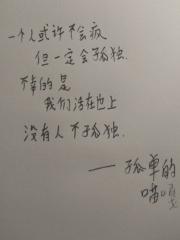 一个人或许不会疯
但一定会孤独.
不幸的是
我们活在世上
没有人不孤独.
——孤单的
喵